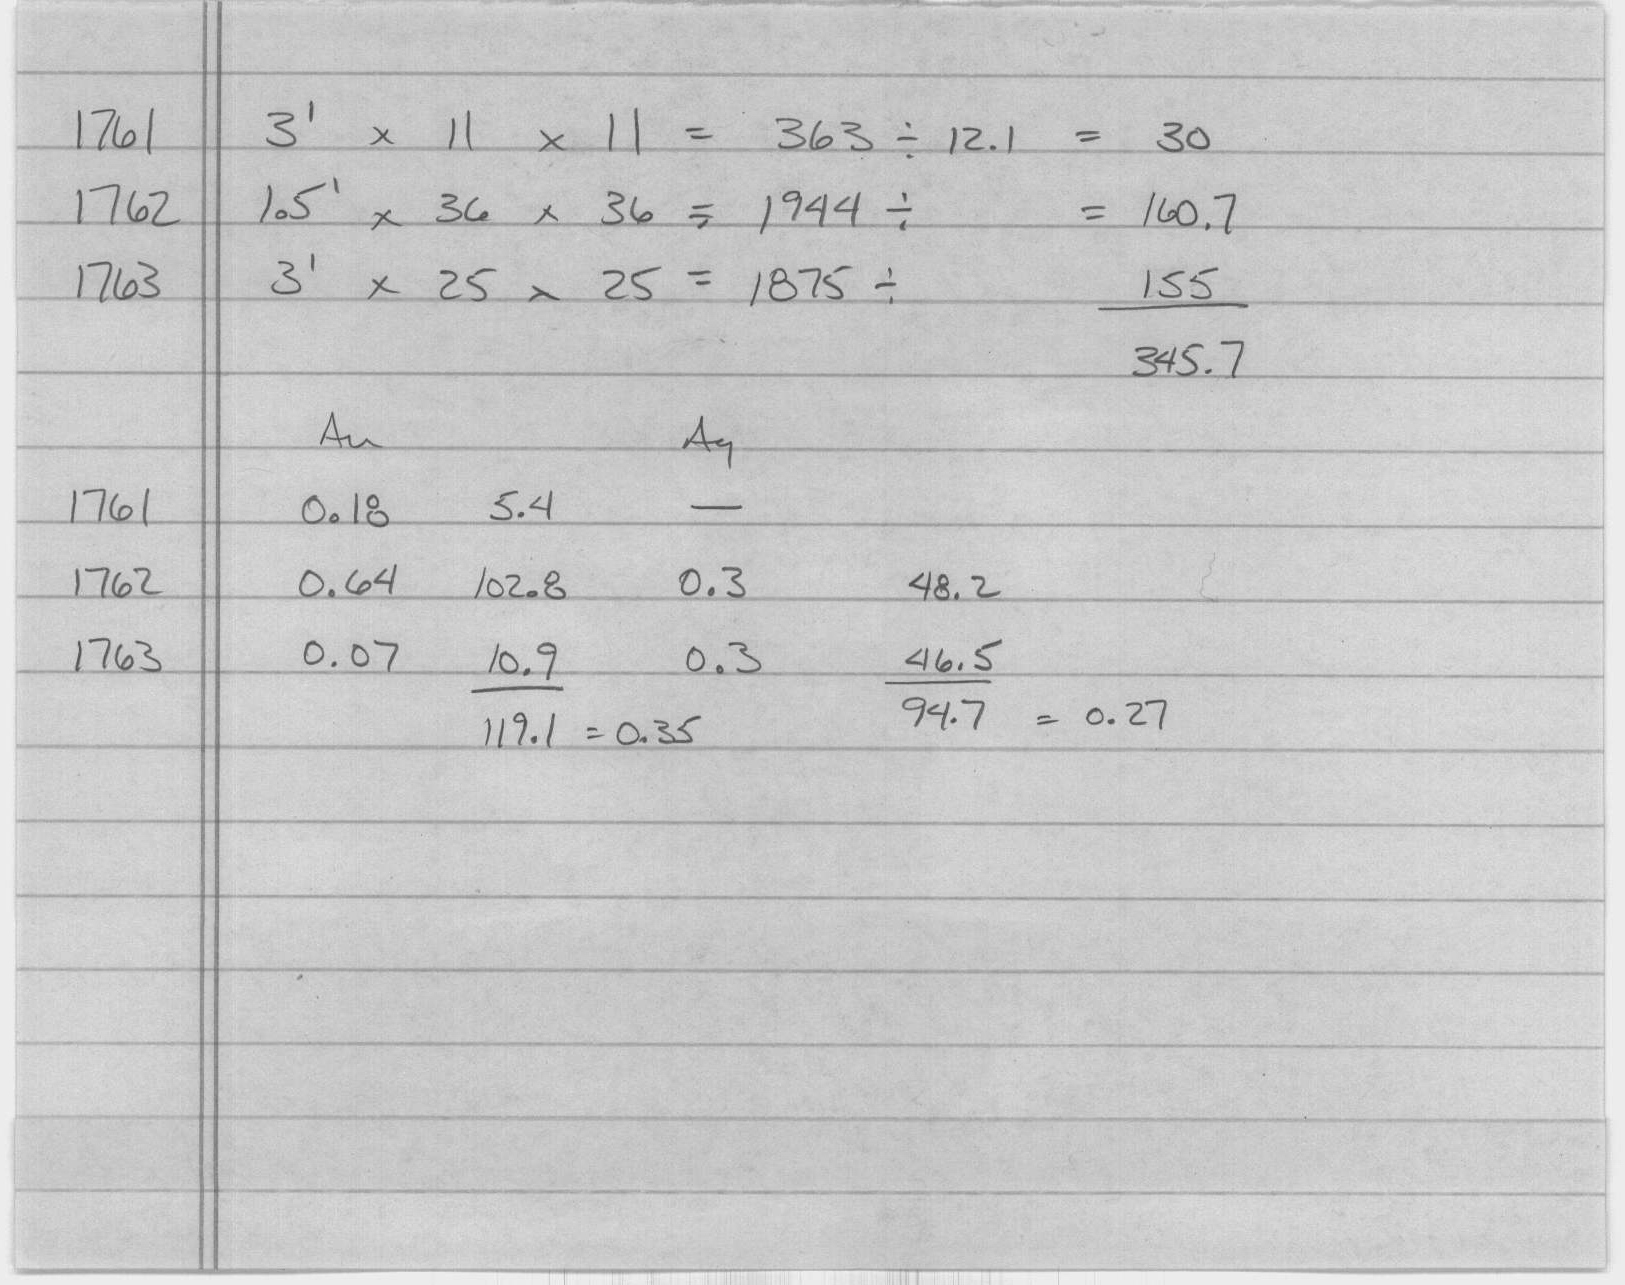 1761 3' x 11 x 11 = 363 ÷ 12.1 = 30
1762 1.5' x 36 x 36 = 1944 ÷ = 160.7
1763 3' x 25 x 25 = 1875 ÷ 155
345.7
Au Ag
1761 0.18 5.4 —
1762 0.64 102.8 0.3 48.2
1763 0.07 10.9 0.3 46.5
119.1 = 0.35 94.7 = 0.27